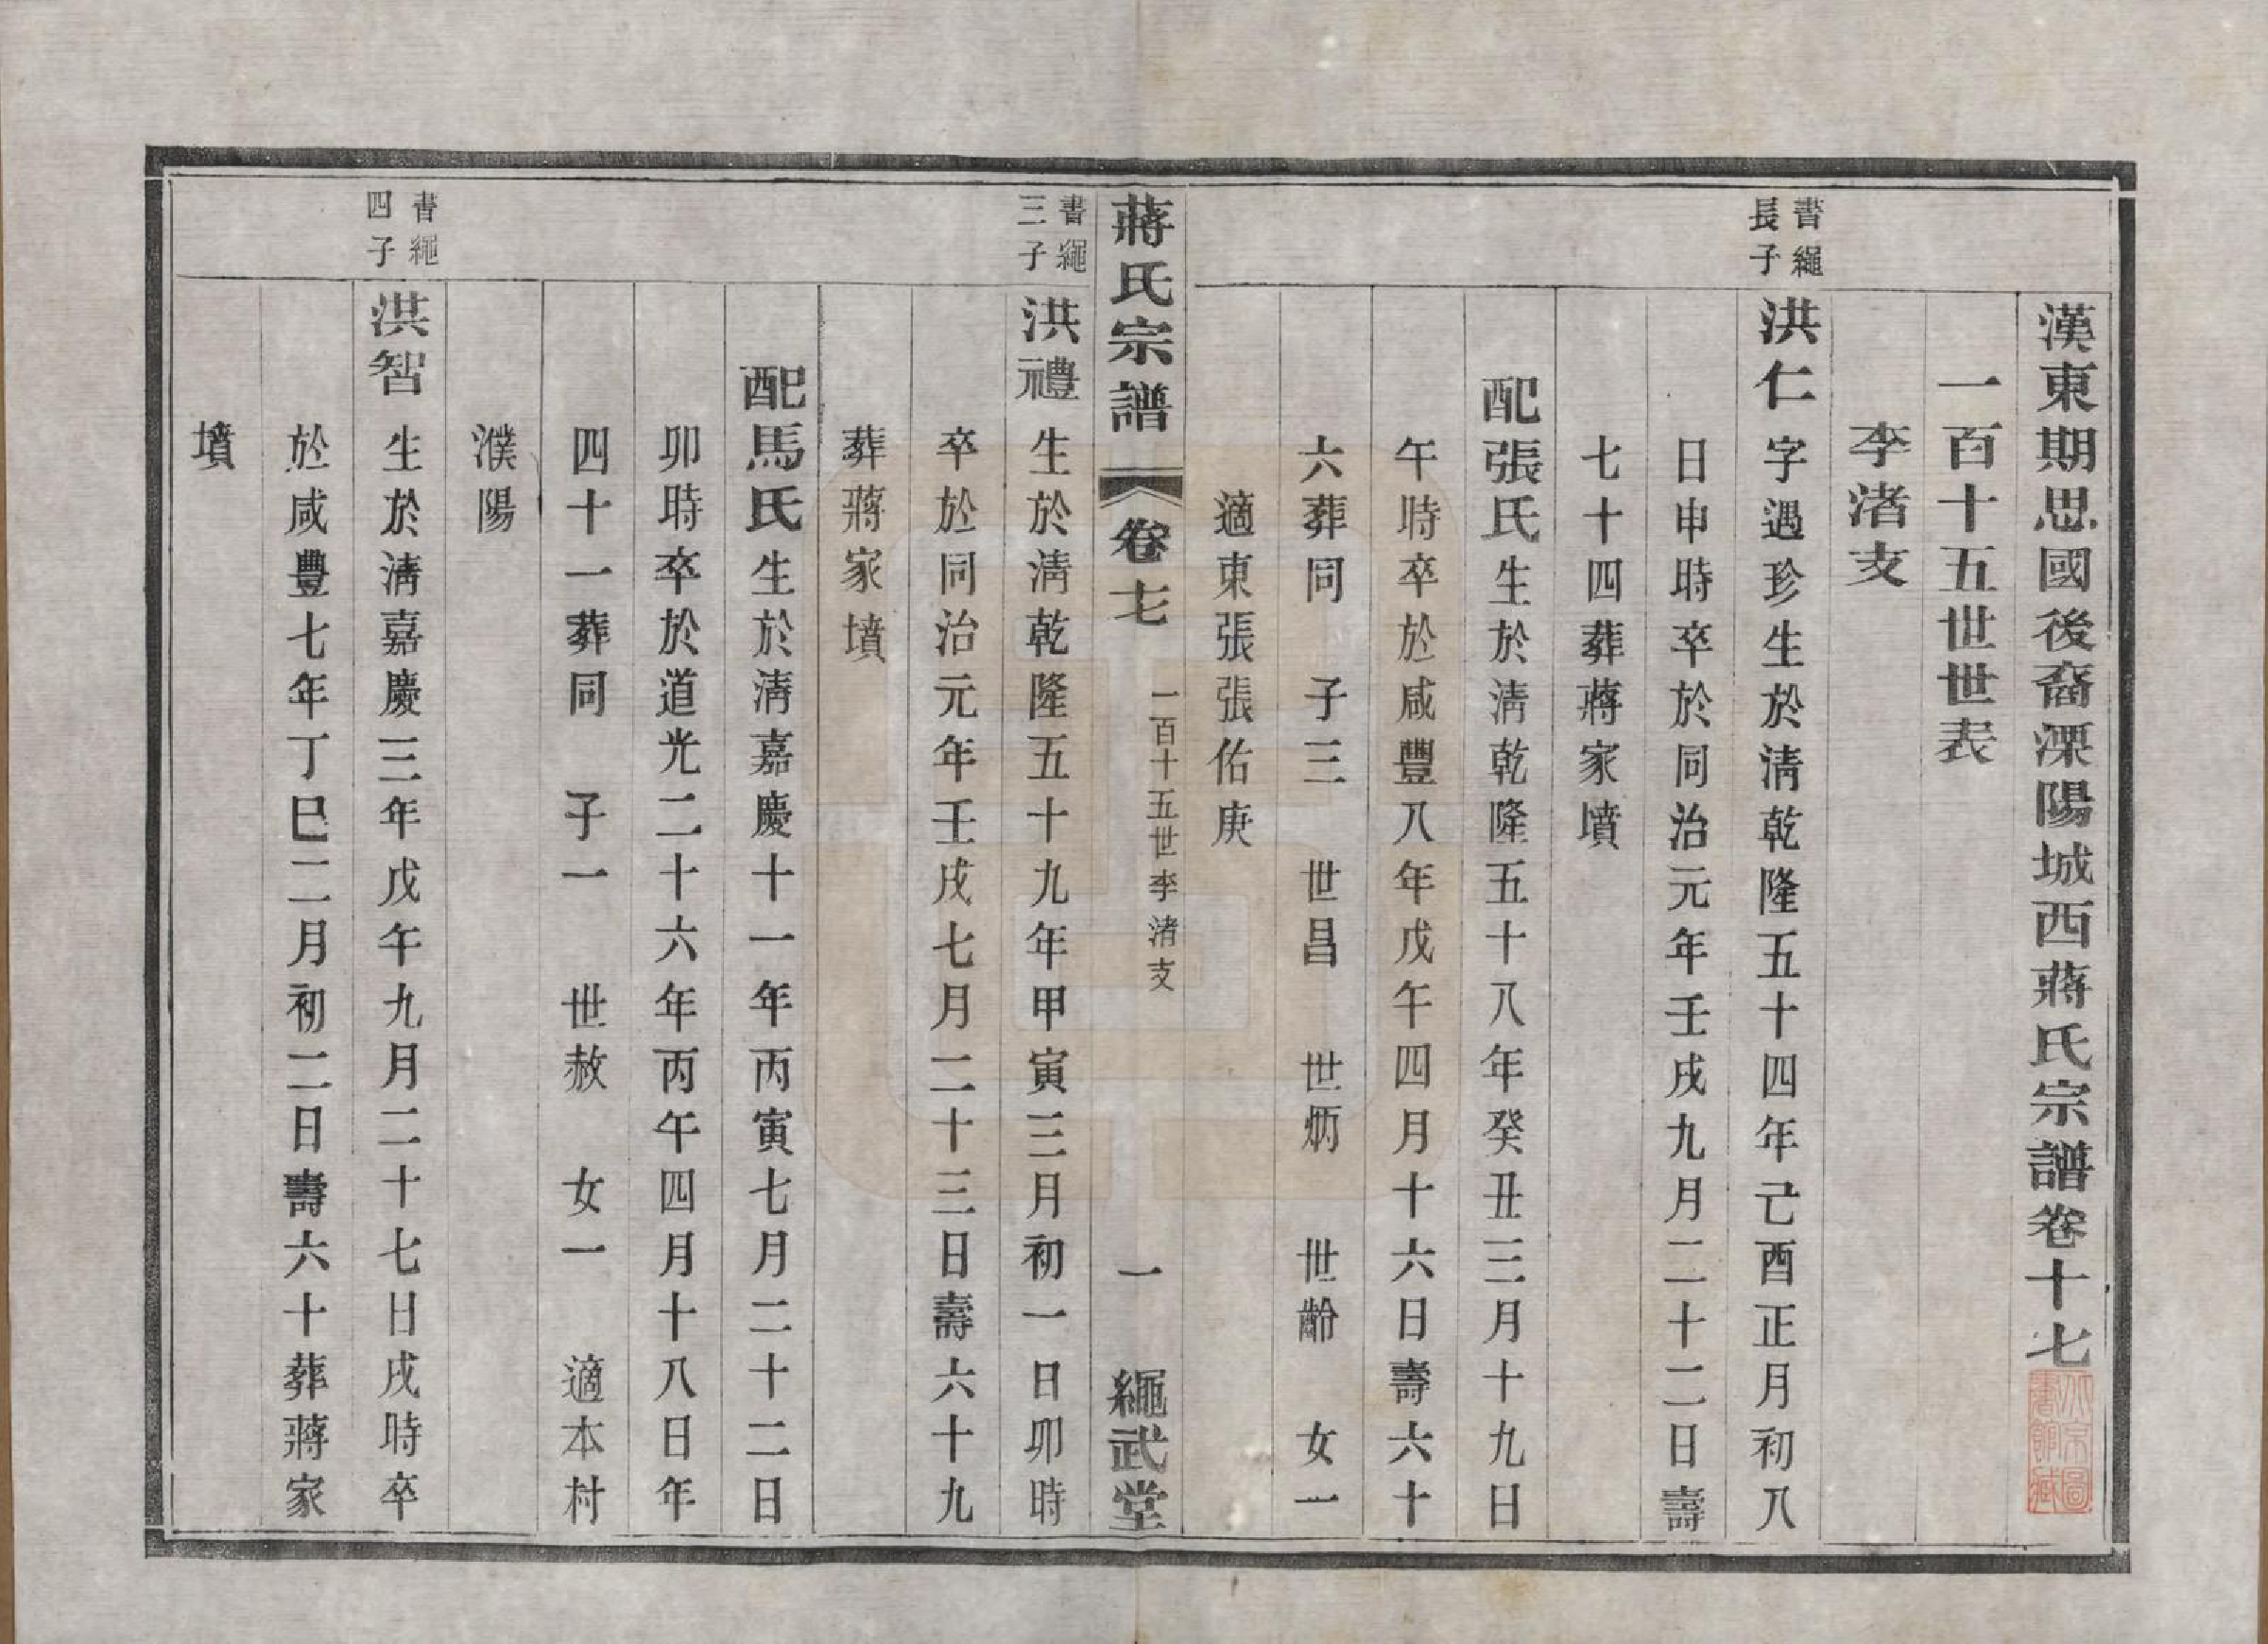 漢東期思國後裔溧陽城西蔣氏宗譜卷十七
一百十五世世表
李渚支
書繩
長子
洪仁 字遇珍生於淸乾隆五十四年己酉正月初八
日申時卒於同治元年壬戌九月二十二日壽
七十四葬蔣家墳
配張氏生於淸乾隆五十八年癸丑三月十九日
午時卒於咸豐八年戊午四月十六日壽六十
六葬同 子三 世昌 世炳 世齡 女一
適東張張佑庚
蔣氏宗譜 卷七 一百十五世李渚支 一 繩武堂
書繩
三子
洪禮 生於淸乾隆五十九年甲寅三月初一日卯時
卒於同治元年壬戌七月二十三日壽六十九
葬蔣家墳
配馬氏生於淸嘉慶十一年丙寅七月二十二日
卯時卒於道光二十六年丙午四月十八日年
四十一葬同 子一 世赦 女一 適本村
濮陽
書繩
四子
洪智 生於淸嘉慶三年戊午九月二十七日戌時卒
於咸豐七年丁巳二月初二日壽六十葬蔣家
墳